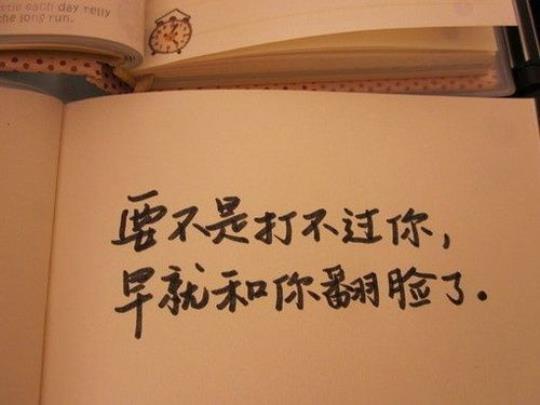 each day relly
the long run.
要不是打不过你,
早就和你翻脸了。